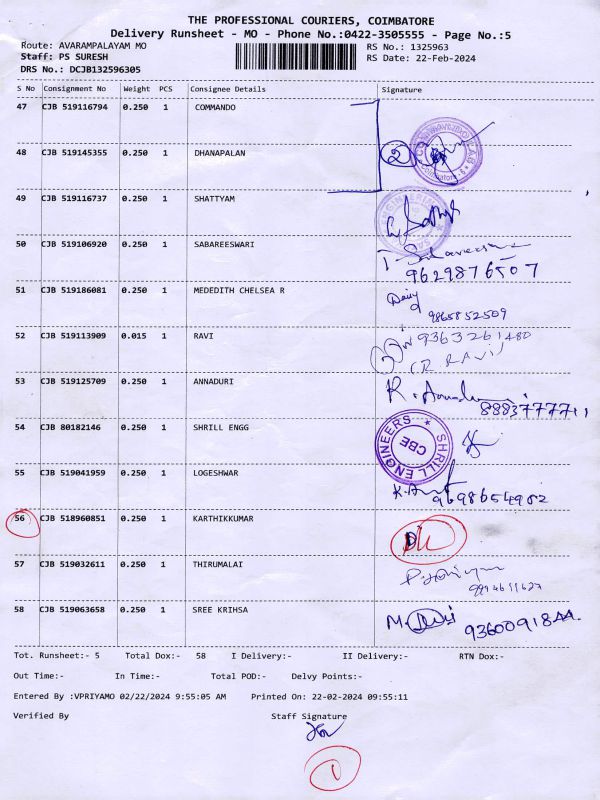 THE PROFESSIONAL COURIERS, COIMBATORE
Delivery Runsheet - MO - Phone No.:0422-3505555 - Page No.:5
Route: AVARAMPALAYAM MO RS No.: 1325963
Staff: PS SURESH RS Date: 22-Feb-2024
DRS No.: DCJB132596305
S No Consignment No Weight PCS Consignee Details Signature
47 CJB 519116794 0.250 1 COMMANDO
48 CJB 519145355 0.250 1 DHANAPALAN 2
49 CJB 519116737 0.250 1 SHATTYAM
50 CJB 519106920 0.250 1 SABAREESWARI
9629876507
51 CJB 519186081 0.250 1 MEDEDITH CHELSEA R
9865852509
52 CJB 519113909 0.015 1 RAVI 9363261480
(R RAVI)
53 CJB 519125709 0.250 1 ANNADURI
54 CJB 80182146 0.250 1 SHRILL ENGG SHRILL ENGINEERS CBE
55 CJB 519041959 0.250 1 LOGESHWAR
9698654902
56 CJB 518960851 0.250 1 KARTHIKKUMAR
57 CJB 519032611 0.250 1 THIRUMALAI
58 CJB 519063658 0.250 1 SREE KRIHSA
9360091844
Tot. Runsheet:- 5 Total Dox:- 58 I Delivery:- II Delivery:- RTN Dox:-
Out Time:- In Time:- Total POD:- Delvy Points:-
Entered By :VPRIYAMO 02/22/2024 9:55:05 AM Printed On: 22-02-2024 09:55:11
Verified By Staff Signature
1